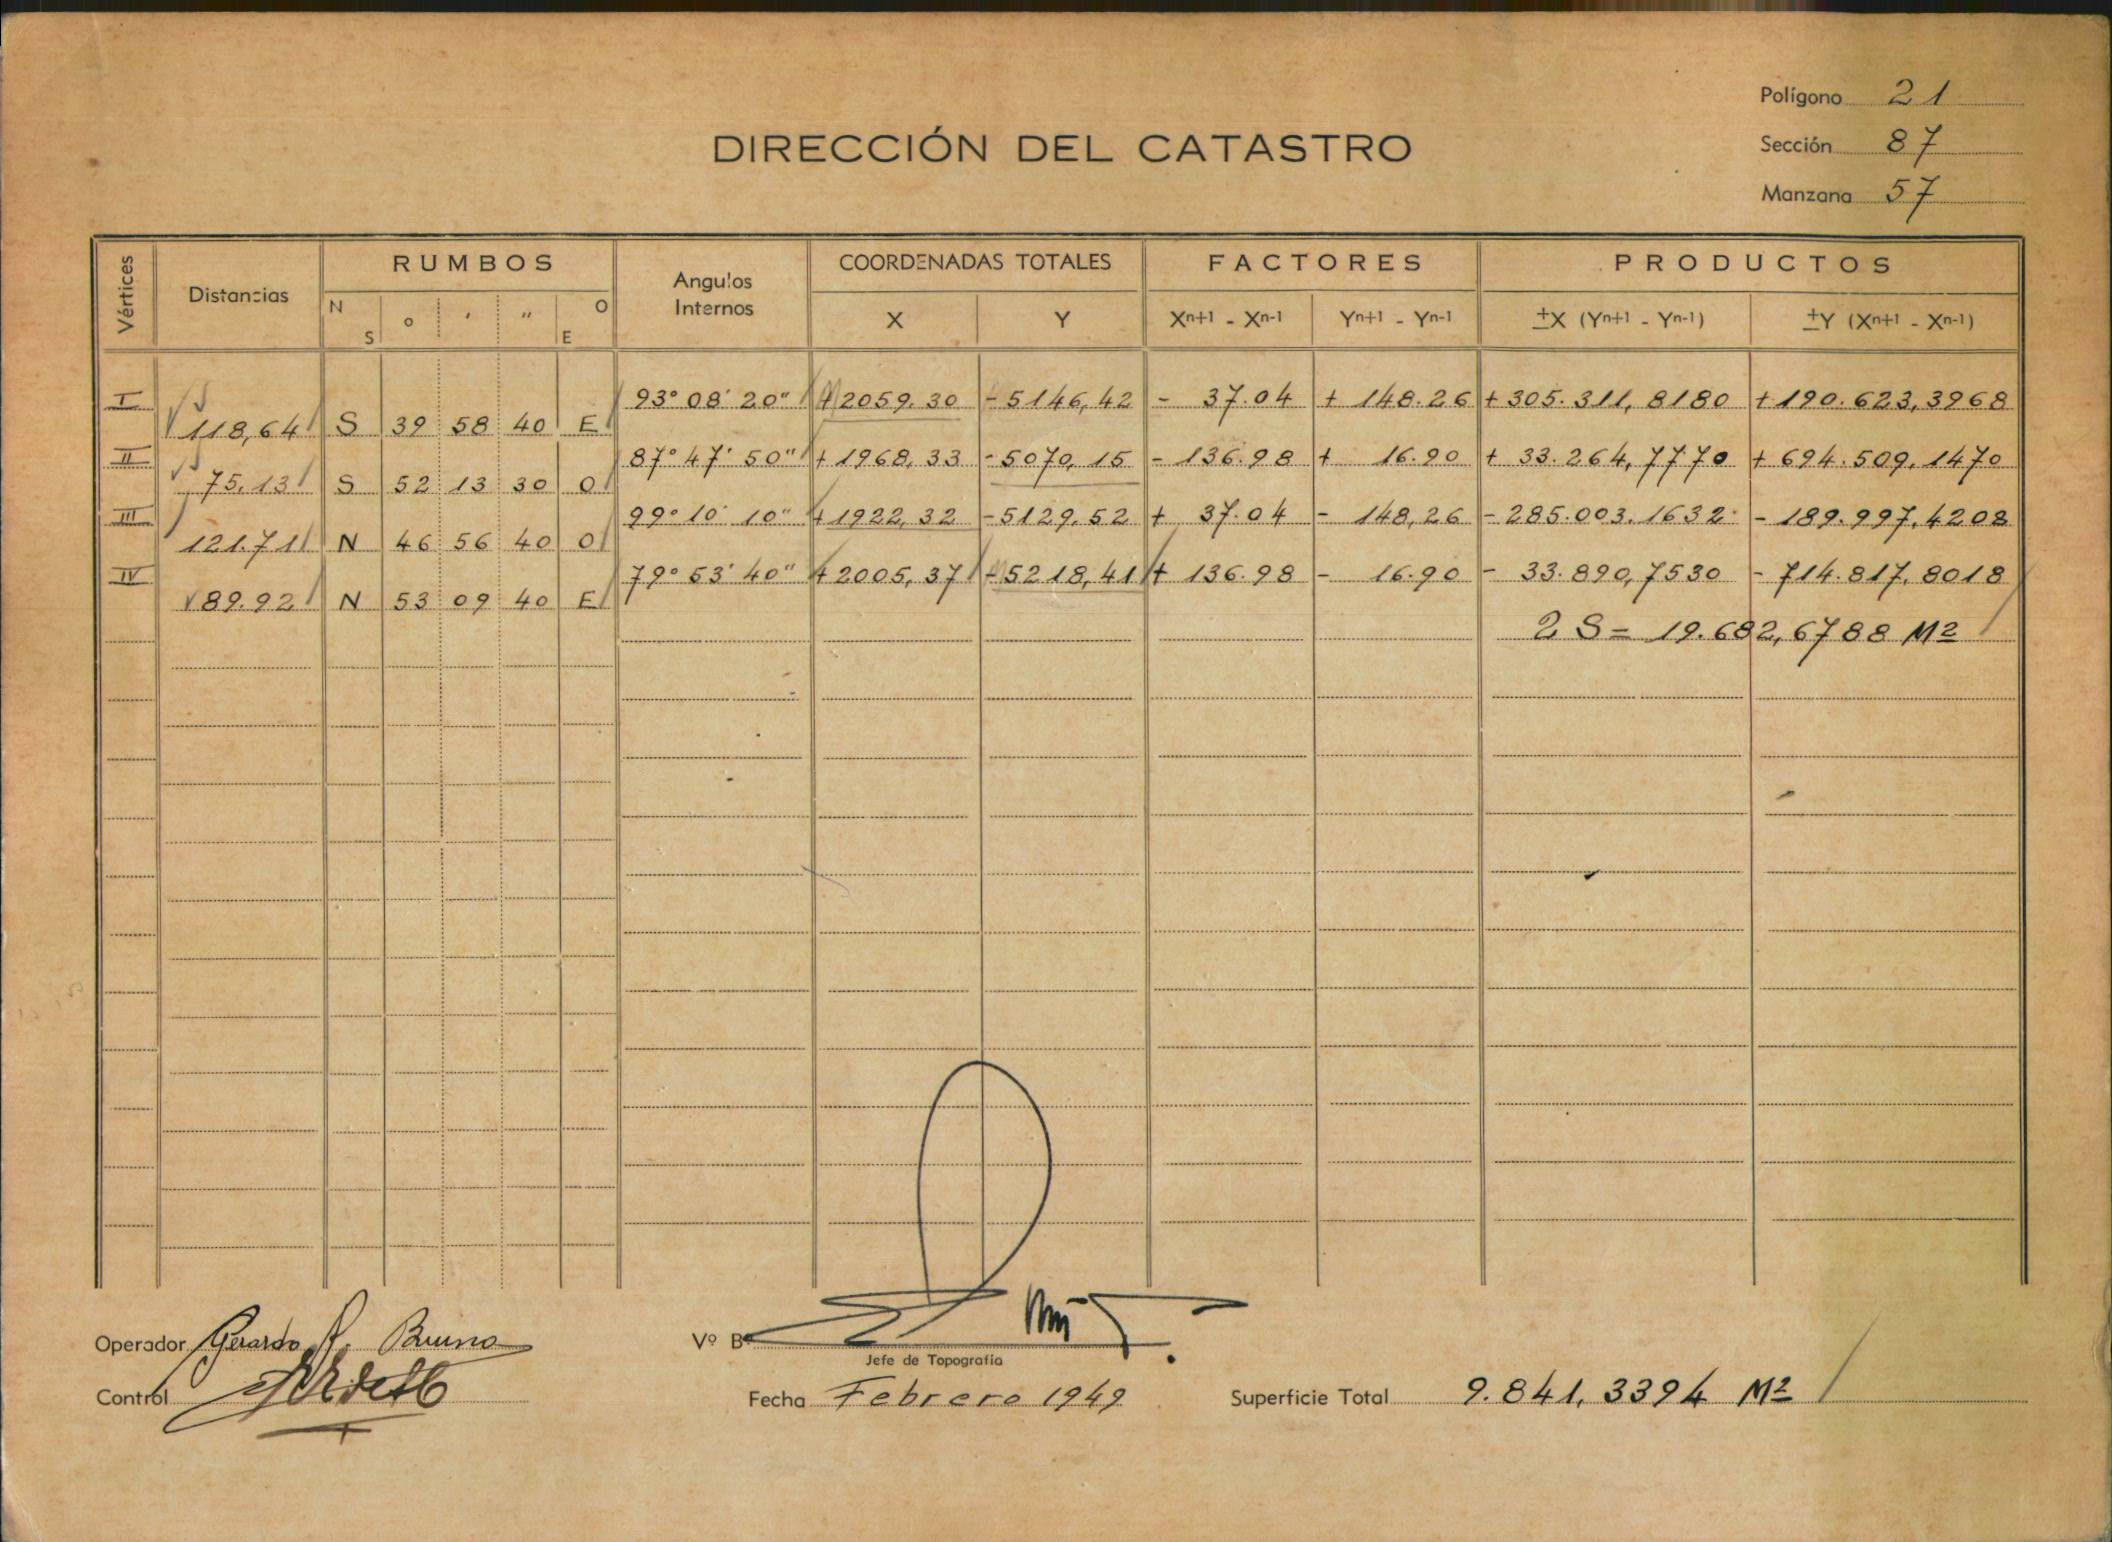 Polígono 21
DIRECCIÓN DEL CATASTRO
Sección 87
Manzana 57
Vértices Distancias RUMBOS Angulos Internos COORDENADAS TOTALES FACTORES PRODUCTOS
N S o ' " O E X Y Xn+1 - Xn-1 Yn+1 - Yn-1 ±X (Yn+1 - Yn-1) ±Y (Xn+1 - Xn-1)
I 93° 08' 20" + 2059.30 - 5146,42 - 37.04 + 148.26 + 305.311,8180 + 190.623,3968
118,64 S 39 58 40 E
II 87° 47' 50" + 1968,33 - 5070,15 - 136.98 + 16.90 + 33.264,7770 + 694.509,1470
75.13 S 52 13 30 O
III 99° 10' 10" + 1922,32 - 5129.52 + 37.04 - 148,26 - 285.003.1632 - 189.997,4208
121.71 N 46 56 40 O
IV 79° 53' 40" + 2005,37 - 5218,41 + 136.98 - 16.90 - 33.890,7530 - 714.817,8018
89.92 N 53 09 40 E
2 S = 19.682,6788 M2
Operador Gerardo R. Bruno
Vº Bº
Jefe de Topografía
Control
Fecha Febrero 1949
Superficie Total 9.841,3394 M2